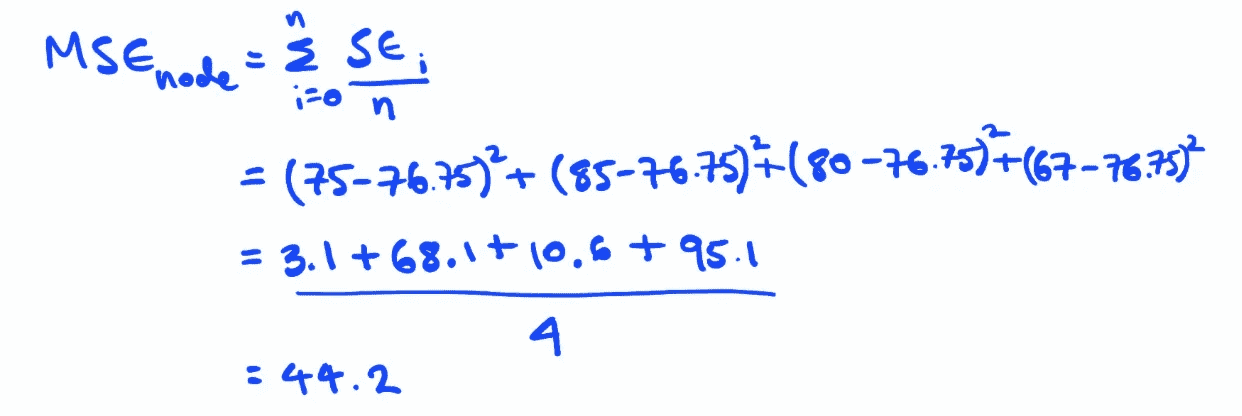 MSE_node = Σ_{i=0}^{n} SE_i / n
= (75-76.75)² + (85-76.75)² + (80-76.75)² + (67-76.75)²
= 3.1 + 68.1 + 10.6 + 95.1
4
= 44.2